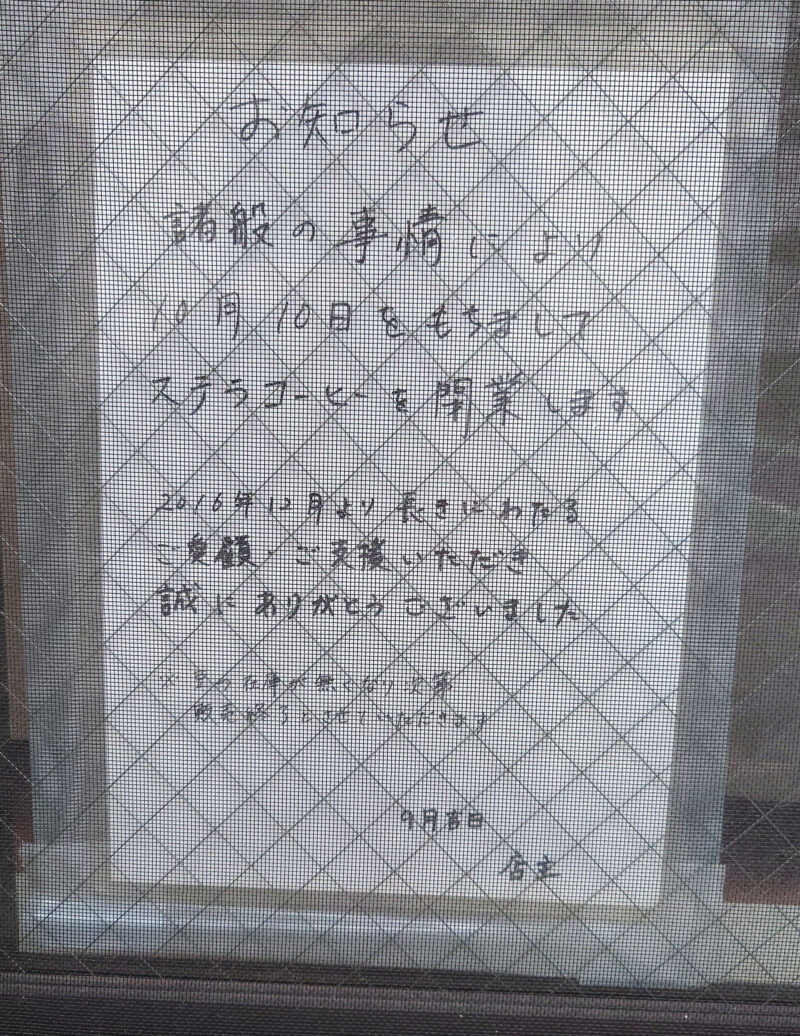 お知らせ
諸般の事情により
10月10日をもちまして
ステラコーヒーを閉業します
2016年12月より長きにわたる
ご愛顧・ご支援いただき
誠にありがとうございました
※ 豆の在庫が無くなり次第
販売終了とさせていただきます
9月吉日
店主